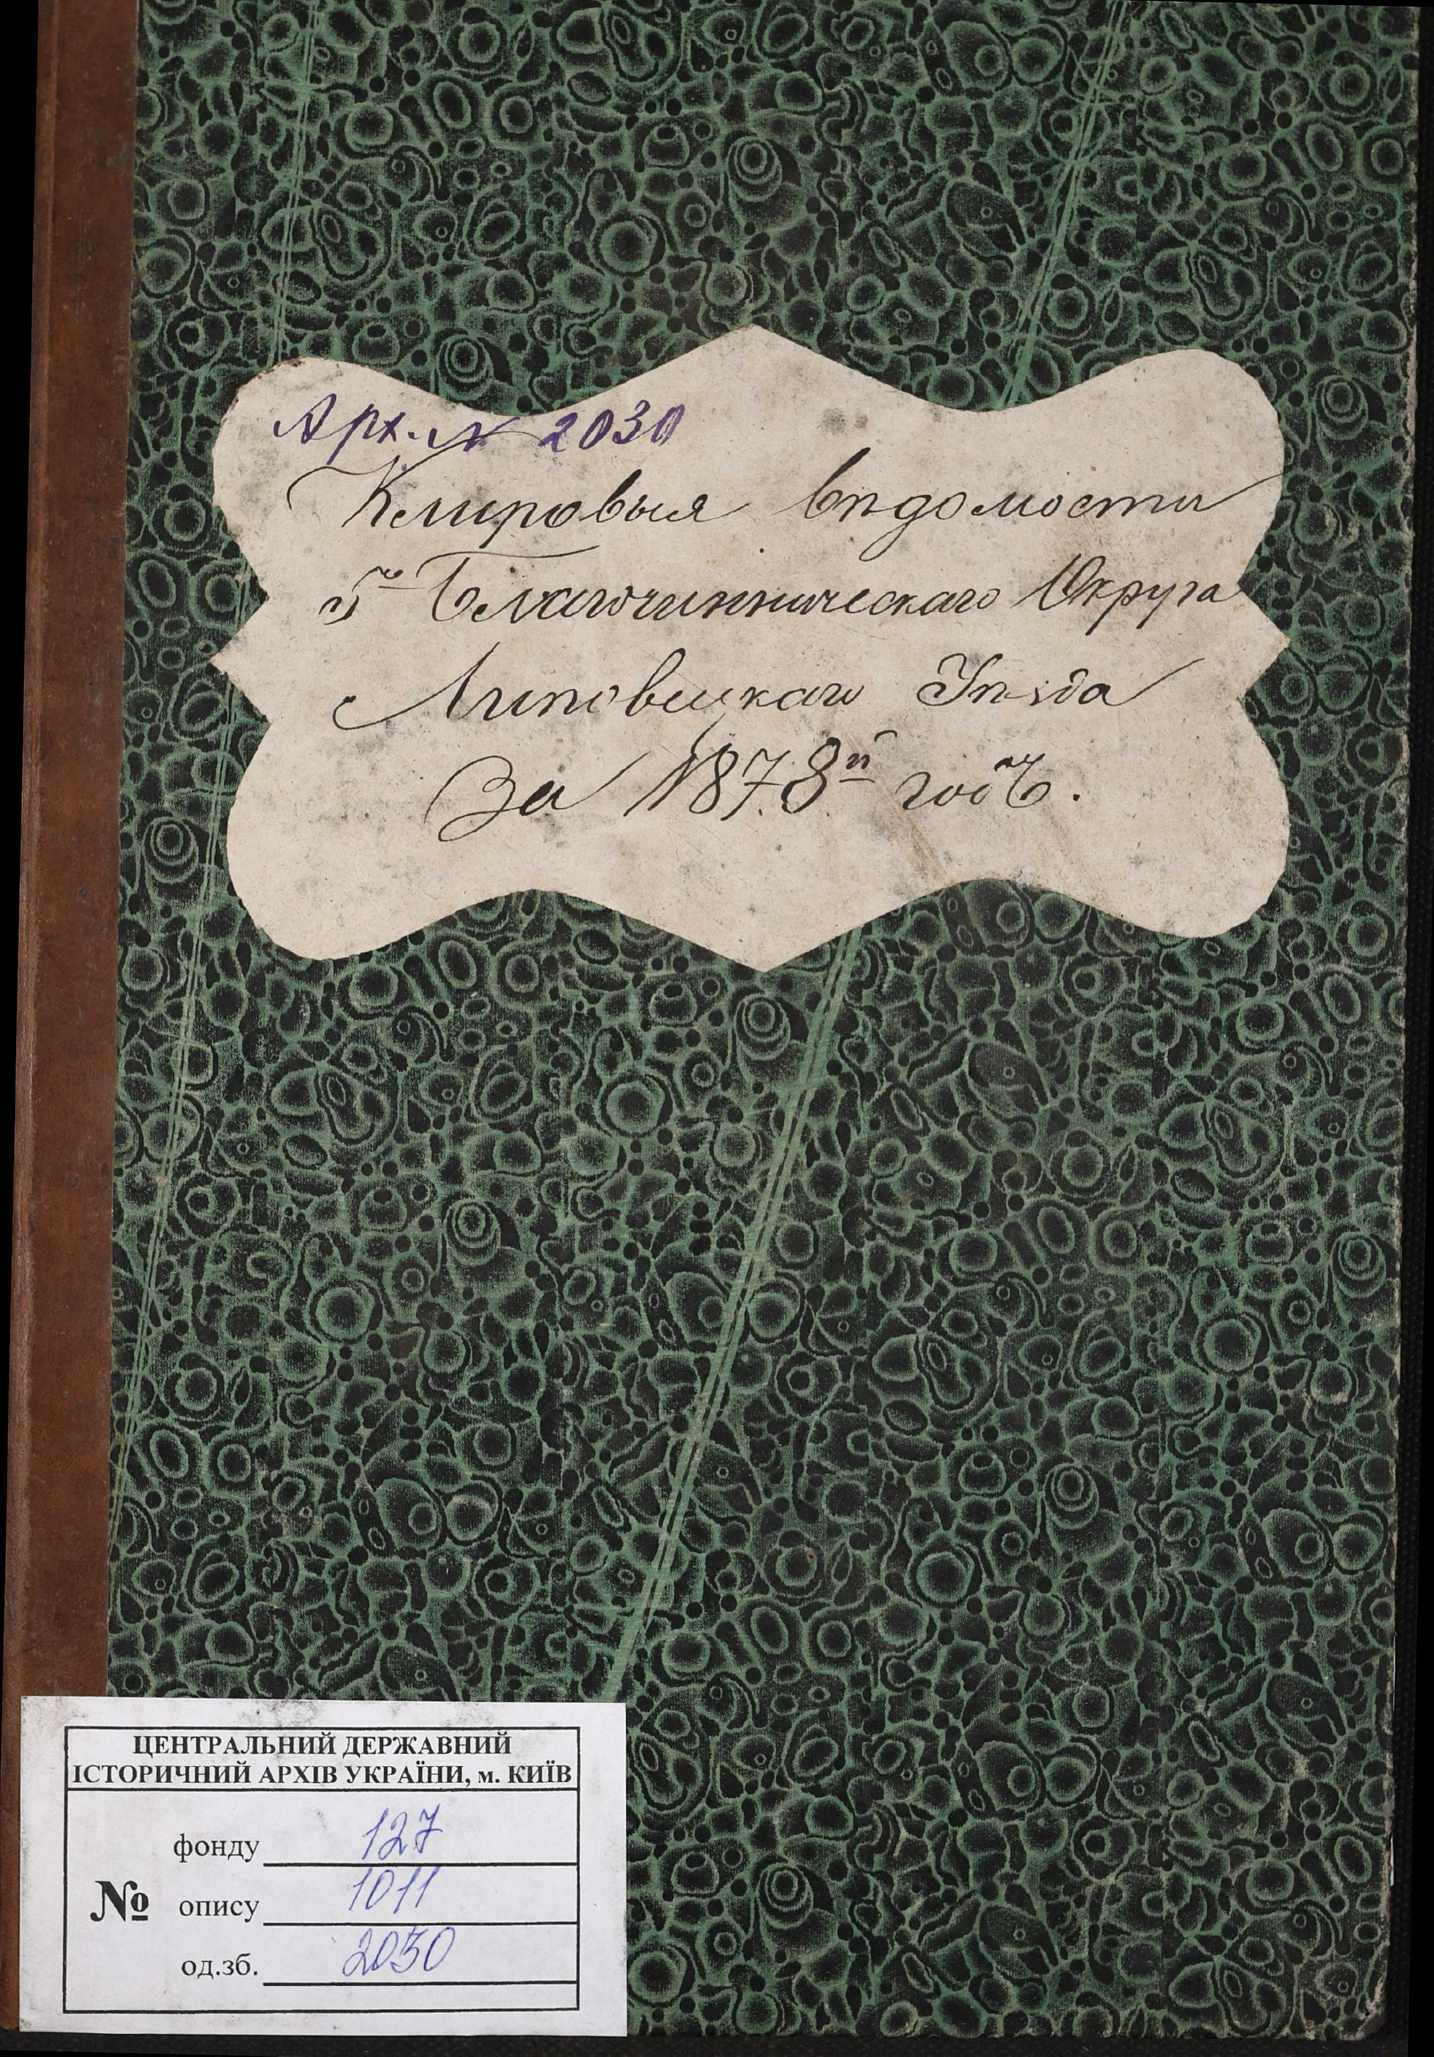 Арх. № 2030
Клировыя вѣдомости
5го Благочинническаго Округа
Липовецкаго Уѣзда
За 1878й годъ.
ЦЕНТРАЛЬНИЙ ДЕРЖАВНИЙ
ІСТОРИЧНИЙ АРХІВ УКРАЇНИ, м. КИЇВ
фонду 127
№ опису 1011
од.зб. 2050